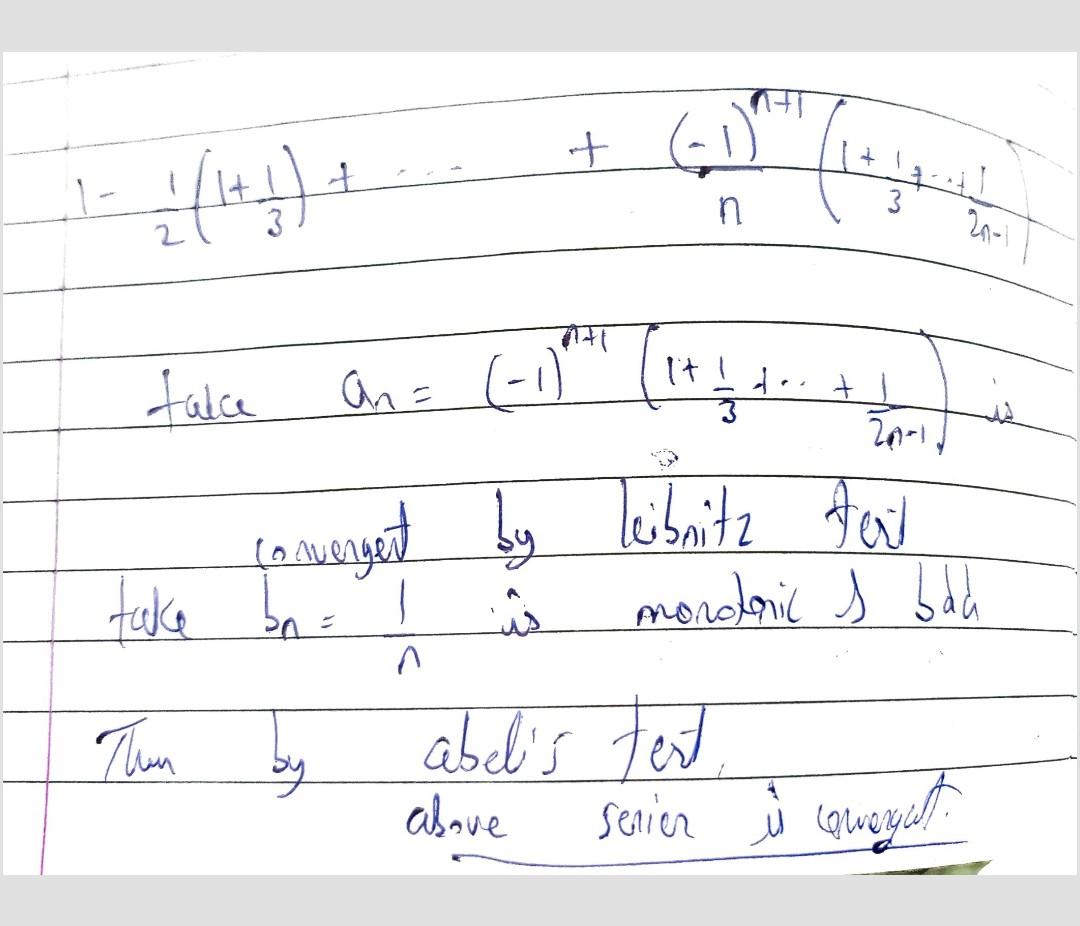 1 - 1/2 (1 + 1/3) + ... + (-1)^(n+1)/n (1 + 1/3 + ... + 1/(2n-1))
take an = (-1)^(n+1) (1 + 1/3 + ... + 1/(2n-1)) is
convergent by leibnitz test
take bn = 1/n is monotonic & bdd
Then by abel's test,
above series is convergent.